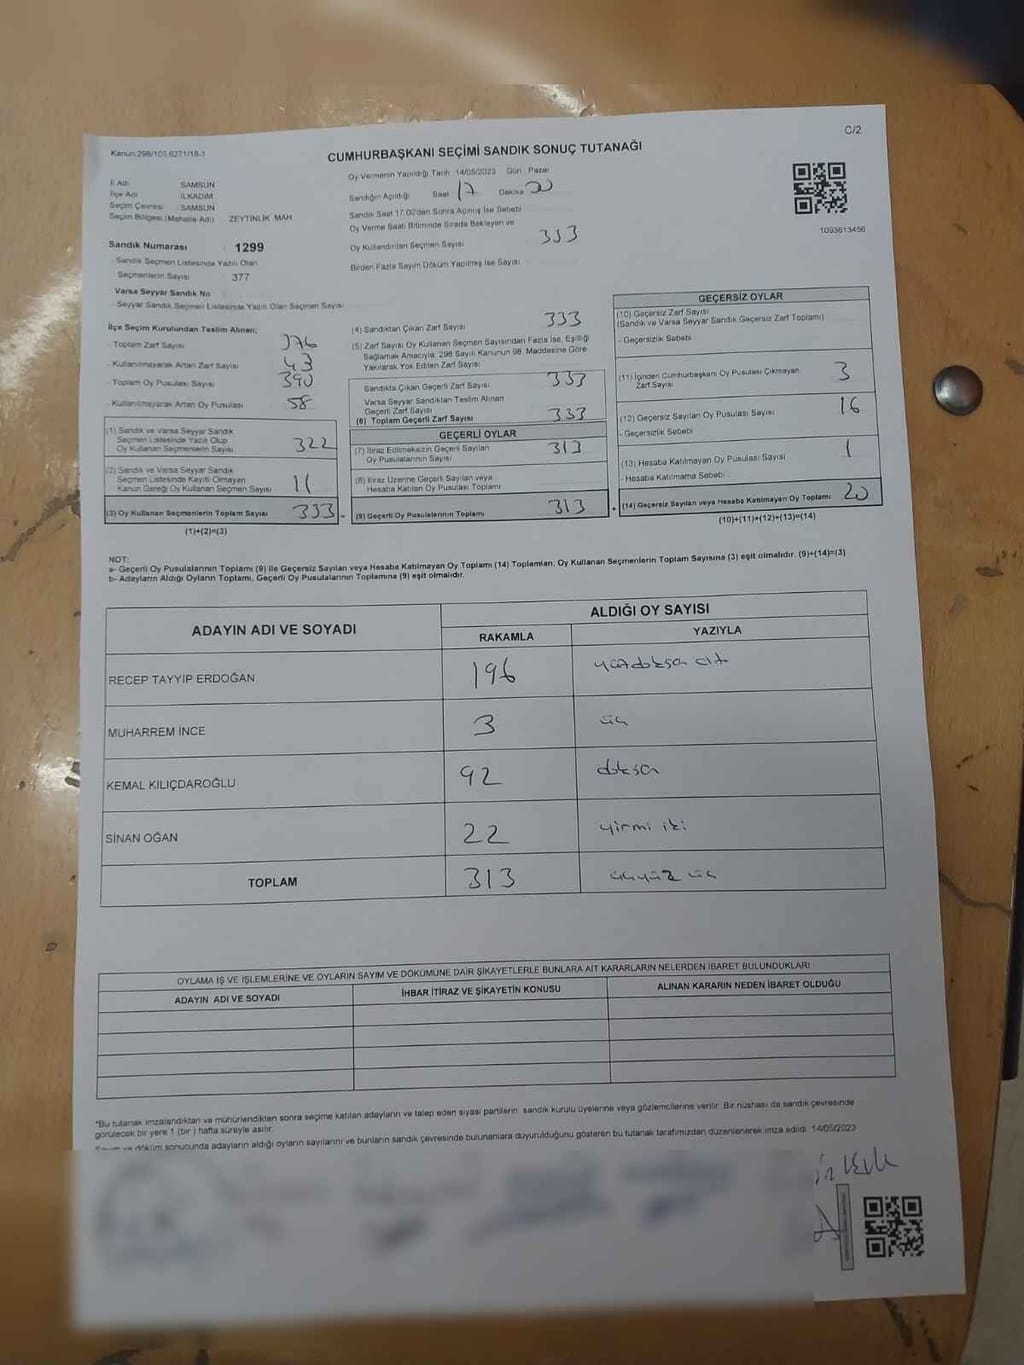 C/2
Kanun:298/105 6271/18-1
CUMHURBAŞKANI SEÇİMİ SANDIK SONUÇ TUTANAĞI
İl Adı SAMSUN
İlçe Adı İLKADIM
Seçim Çevresi : SAMSUN
Seçim Bölgesi (Mahalle Adı) ZEYTİNLİK MAH
Oy Vermenin Yapıldığı Tarih 14/05/2023 Gün : Pazar
Sandığın Açıldığı Saat 17 Dakika 00
Sandık Saat 17.00'den Sonra Açılmış İse Sebebi
Oy Verme Saati Bitiminde Sırada Bekleyen ve
Oy Kullandırılan Seçmen Sayısı 333
Birden Fazla Sayım Döküm Yapılmış İse Sayısı
1093613456
Sandık Numarası : 1299
- Sandık Seçmen Listesinde Yazılı Olan
Seçmenlerin Sayısı 377
Varsa Seyyar Sandık No
- Seyyar Sandık Seçmen Listesinde Yazılı Olan Seçmen Sayısı
İlçe Seçim Kurulundan Teslim Alınan;
- Toplam Zarf Sayısı 376
- Kullanılmayarak Artan Zarf Sayısı 43
- Toplam Oy Pusulası Sayısı 390
- Kullanılmayarak Artan Oy Pusulası 58
(1) Sandık ve Varsa Seyyar Sandık
Seçmen Listesinde Yazılı Olup
Oy Kullanan Seçmenlerin Sayısı 322
(2) Sandık ve Varsa Seyyar Sandık
Seçmen Listesinde Kayıtlı Olmayan
Kanun Gereği Oy Kullanan Seçmen Sayısı 11
(3) Oy Kullanan Seçmenlerin Toplam Sayısı 333 =
(1)+(2)=(3)
(4) Sandıktan Çıkan Zarf Sayısı 333
(5) Zarf Sayısı Oy Kullanan Seçmen Sayısından Fazla İse, Eşitliği
Sağlamak Amacıyla, 298 Sayılı Kanunun 98. Maddesine Göre
Yakılarak Yok Edilen Zarf Sayısı
Sandıkta Çıkan Geçerli Zarf Sayısı 333
Varsa Seyyar Sandıktan Teslim Alınan
Geçerli Zarf Sayısı
(6) Toplam Geçerli Zarf Sayısı 333
GEÇERLİ OYLAR
(7) İtiraz Edilmeksizin Geçerli Sayılan
Oy Pusulalarının Sayısı 313
(8) İtiraz Üzerine Geçerli Sayılan veya
Hesaba Katılan Oy Pusulası Toplamı
(9) Geçerli Oy Pusulalarının Toplamı 313 +
GEÇERSİZ OYLAR
(10) Geçersiz Zarf Sayısı
(Sandık ve Varsa Seyyar Sandık Geçersiz Zarf Toplamı)
- Geçersizlik Sebebi
(11) İçinden Cumhurbaşkanı Oy Pusulası Çıkmayan
Zarf Sayısı 3
(12) Geçersiz Sayılan Oy Pusulası Sayısı 16
- Geçersizlik Sebebi
(13) Hesaba Katılmayan Oy Pusulası Sayısı 1
- Hesaba Katılmama Sebebi
(14) Geçersiz Sayılan veya Hesaba Katılmayan Oy Toplamı 20
(10)+(11)+(12)+(13)=(14)
NOT:
a- Geçerli Oy Pusulalarının Toplamı (9) ile Geçersiz Sayılan veya Hesaba Katılmayan Oy Toplamı (14) Toplamları, Oy Kullanan Seçmenlerin Toplam Sayısına (3) eşit olmalıdır. (9)+(14)=(3)
b- Adayların Aldığı Oyların Toplamı, Geçerli Oy Pusulalarının Toplamına (9) eşit olmalıdır.
ADAYIN ADI VE SOYADI
ALDIĞI OY SAYISI
RAKAMLA YAZIYLA
RECEP TAYYİP ERDOĞAN 196 yüzdoksan altı
MUHARREM İNCE 3 üç
KEMAL KILIÇDAROĞLU 92 doksan
SİNAN OĞAN 22 yirmi iki
TOPLAM 313 üçyüz üç
OYLAMA İŞ VE İŞLEMLERİNE VE OYLARIN SAYIM VE DÖKÜMÜNE DAİR ŞİKAYETLERLE BUNLARA AİT KARARLARIN NELERDEN İBARET BULUNDUKLARI
ADAYIN ADI VE SOYADI İHBAR İTİRAZ VE ŞİKAYETİN KONUSU ALINAN KARARIN NEDEN İBARET OLDUĞU
*Bu tutanak imzalandıktan ve mühürlendikten sonra seçime katılan adayların ve talep eden siyasi partilerin sandık kurulu üyelerine veya gözlemcilerine verilir. Bir nüshası da sandık çevresinde
görülecek bir yere 1 (bir ) hafta süreyle asılır.
Sayım ve döküm sonucunda adayların aldığı oyların sayılarını ve bunların sandık çevresinde bulunanlara duyurulduğunu gösteren bu tutanak tarafımızdan düzenlenerek imza edildi. 14/05/2023